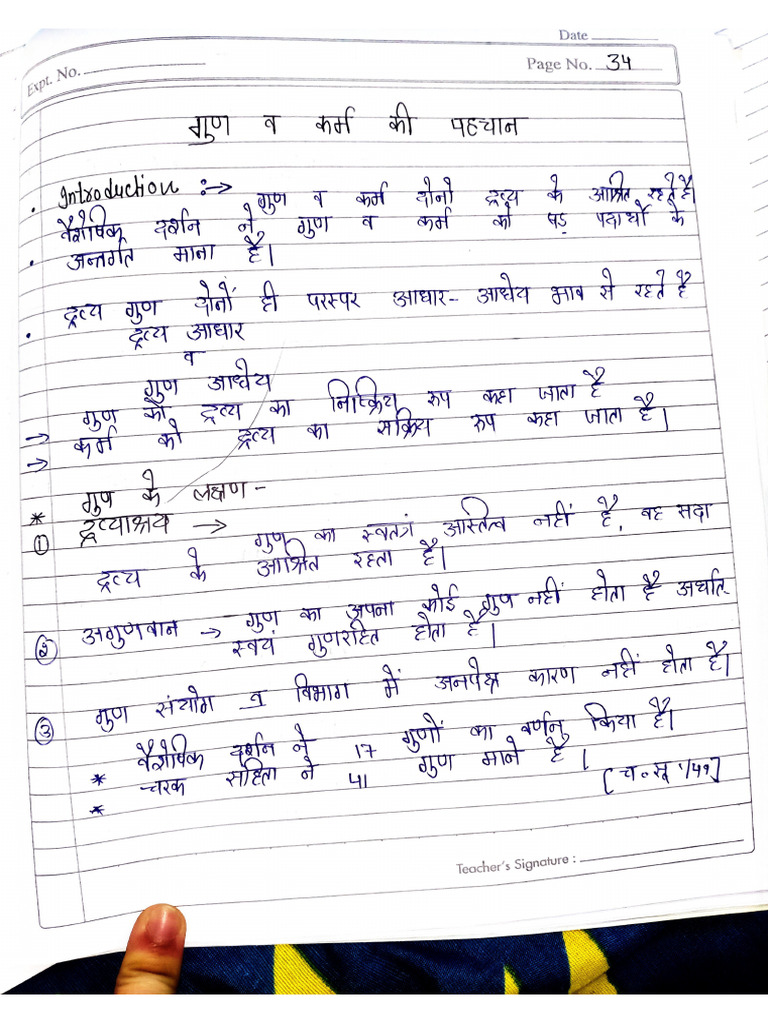 Date
Expt. No.
Page No. 34
गुण व कर्म की पहचान
• Introduction :-> गुण व कर्म दोनो द्रव्य के आश्रित रहते है।
वैशेषिक दर्शन ने, गुण व कर्म को षड् पदार्थो के
• अन्तर्गत माना है।
द्रव्य गुण दोनों ही परस्पर आधार- आधेय भाव से रहते है
• द्रव्य आधार
व
गुण आधेय
-> गुण को द्रव्य का निष्क्रिय रुप कहा जाता है
-> कर्म को द्रव्य का सक्रिय रुप कहा जाता है।
* गुण के लक्षण -
① द्रव्याश्रय -> गुण का स्वतत्रं अस्तित्व नहीं है, वह सदा
द्रव्य के आश्रित रहता है।
② अगुणवान -> गुण का अपना कोई गुण नहीं होता है अर्थात-
स्वयं गुणरहित होता है।
③ गुण संयोग व विभाग में अनपेक्ष कारण नहीं होता है।
* वैशेषिक दर्शन ने 17 गुणों का वर्णन किया है।
* चरक सहिता ने 41 गुण माने है। [च० सू० 1/49]
Teacher's Signature :